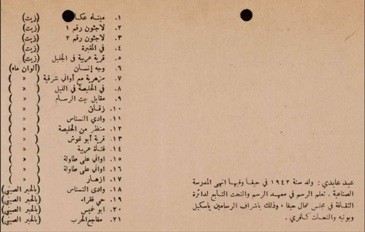 ١. مينـاء عكـا (زيت)
٢. لاجئون رقم ١ (زيت)
٣. لاجئون رقم ٢ (زيت)
٤. في المقبرة (زيت)
٥. قرية عربية في الجليل (زيت)
٦. وجه إنسان (ألوان ماء)
٧. مزهرية مع أواني شرقية ( » )
٨. في الحليصة في الليل ( » )
٩. مقابل بيت الرسام ( » )
١٠. زقاق ( » )
١١. وادي النسناس ( » )
١٢. منظر من الحليصة ( » )
١٣. قرية أبو غوش ( » )
١٤. فتاة عربية ( » )
١٥. أواني على طاولة ( » )
١٦. أواني على طاولة ( » )
١٧. أزهار ( » )
١٨. وادي النسناس (بالحبر الصيني)
١٩. حي فقراء (بالحبر الصيني)
٢٠. أبو عيسى (بالحبر الصيني)
٢١. مفاجع الحرب (بالحبر الصيني)
عبد عابدي : ولد سنة ١٩٤٢ في حيفا وفيها انهى المدرسة
الصناعية . تعلم الرسم في معهد الرسم والنحت التابع لدائرة
الثقافة في مجلس عمال حيفا ، وذلك باشراف الرسامين ياسكيل
وبونيه والنحات كافري .